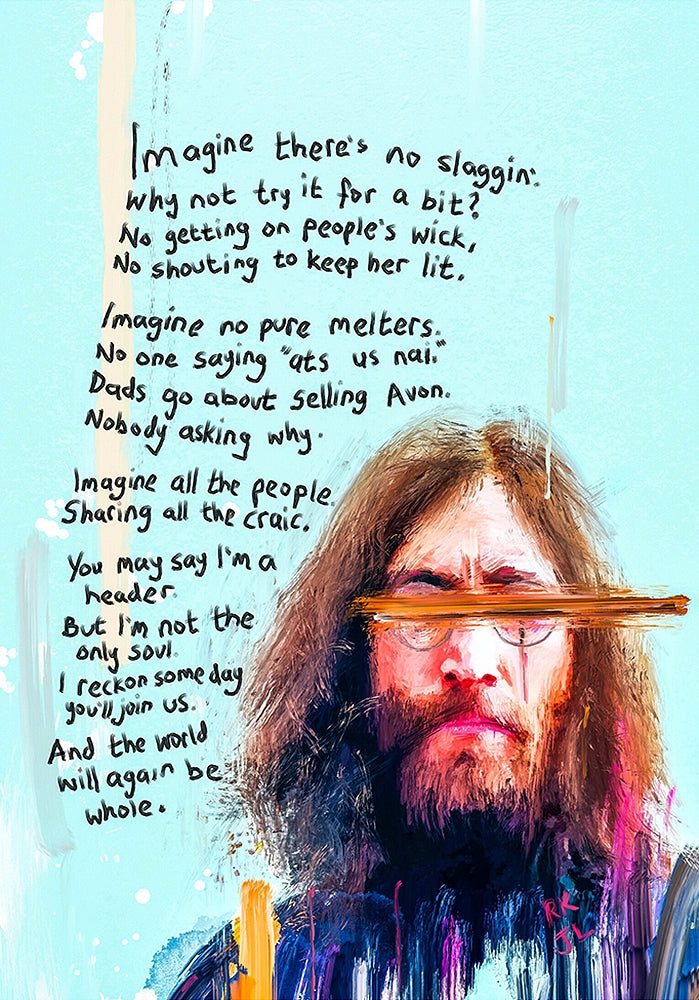 Imagine there's no slaggin.
Why not try it for a bit?
No getting on people's wick,
No shouting to keep her lit.
Imagine no pure melters.
No one saying "ats us nai."
Dads go about selling Avon.
Nobody asking why.
Imagine all the people
Sharing all the craic.
You may say I'm a
header.
But I'm not the
only soul.
I reckon some day
you'll join us.
And the world
will again be
whole.
RK
JL